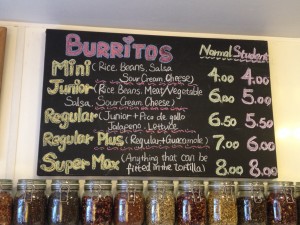 BURRITOS Normal Student
Mini (Rice, Beans, Salsa
Sour Cream, Cheese) 4.00 4.00
Junior (Rice, Beans, Meat/Vegetable
Salsa, Sour Cream, Cheese) 6.00 5.00
Regular (Junior + Pico de gallo
Jalapeno, Lettuce 6.50 5.50
Regular Plus (Regular + Guacamole) 7.00 6.00
Super Max (Anything that can be
fitted in the tortilla) 8.00 8.00